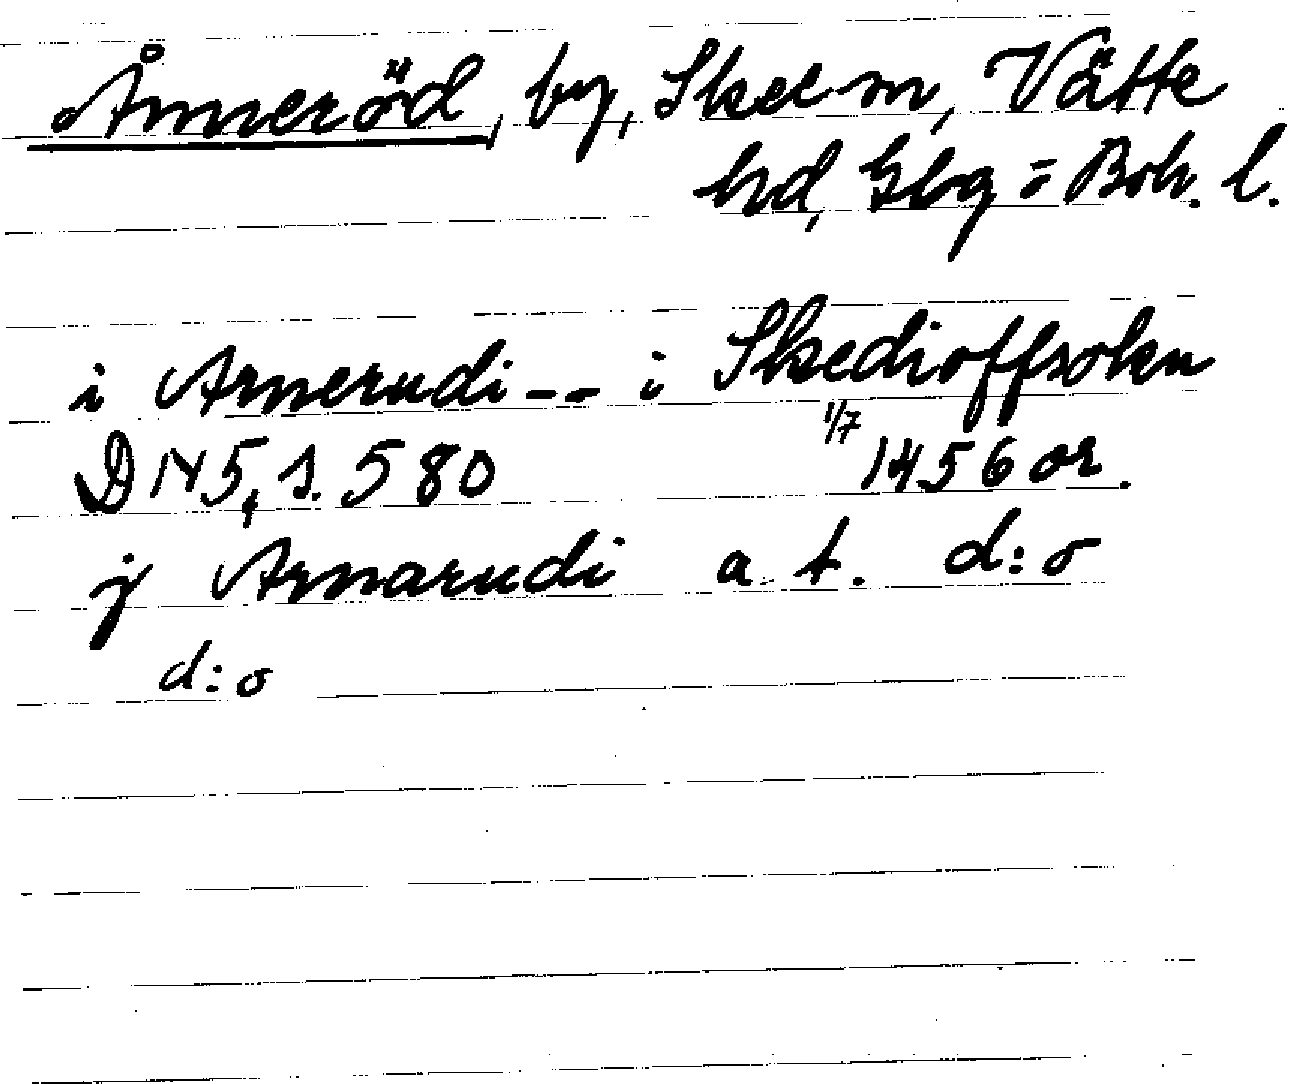 Ånneröd, by, Skee sn, Vätte
hd, Gbg = Boh. l.
i Arnerudi -- i Skedioffsokn
DN 5, s. 580 1/7 1456 or.
j Arnarudi a. t. d:o
d:o